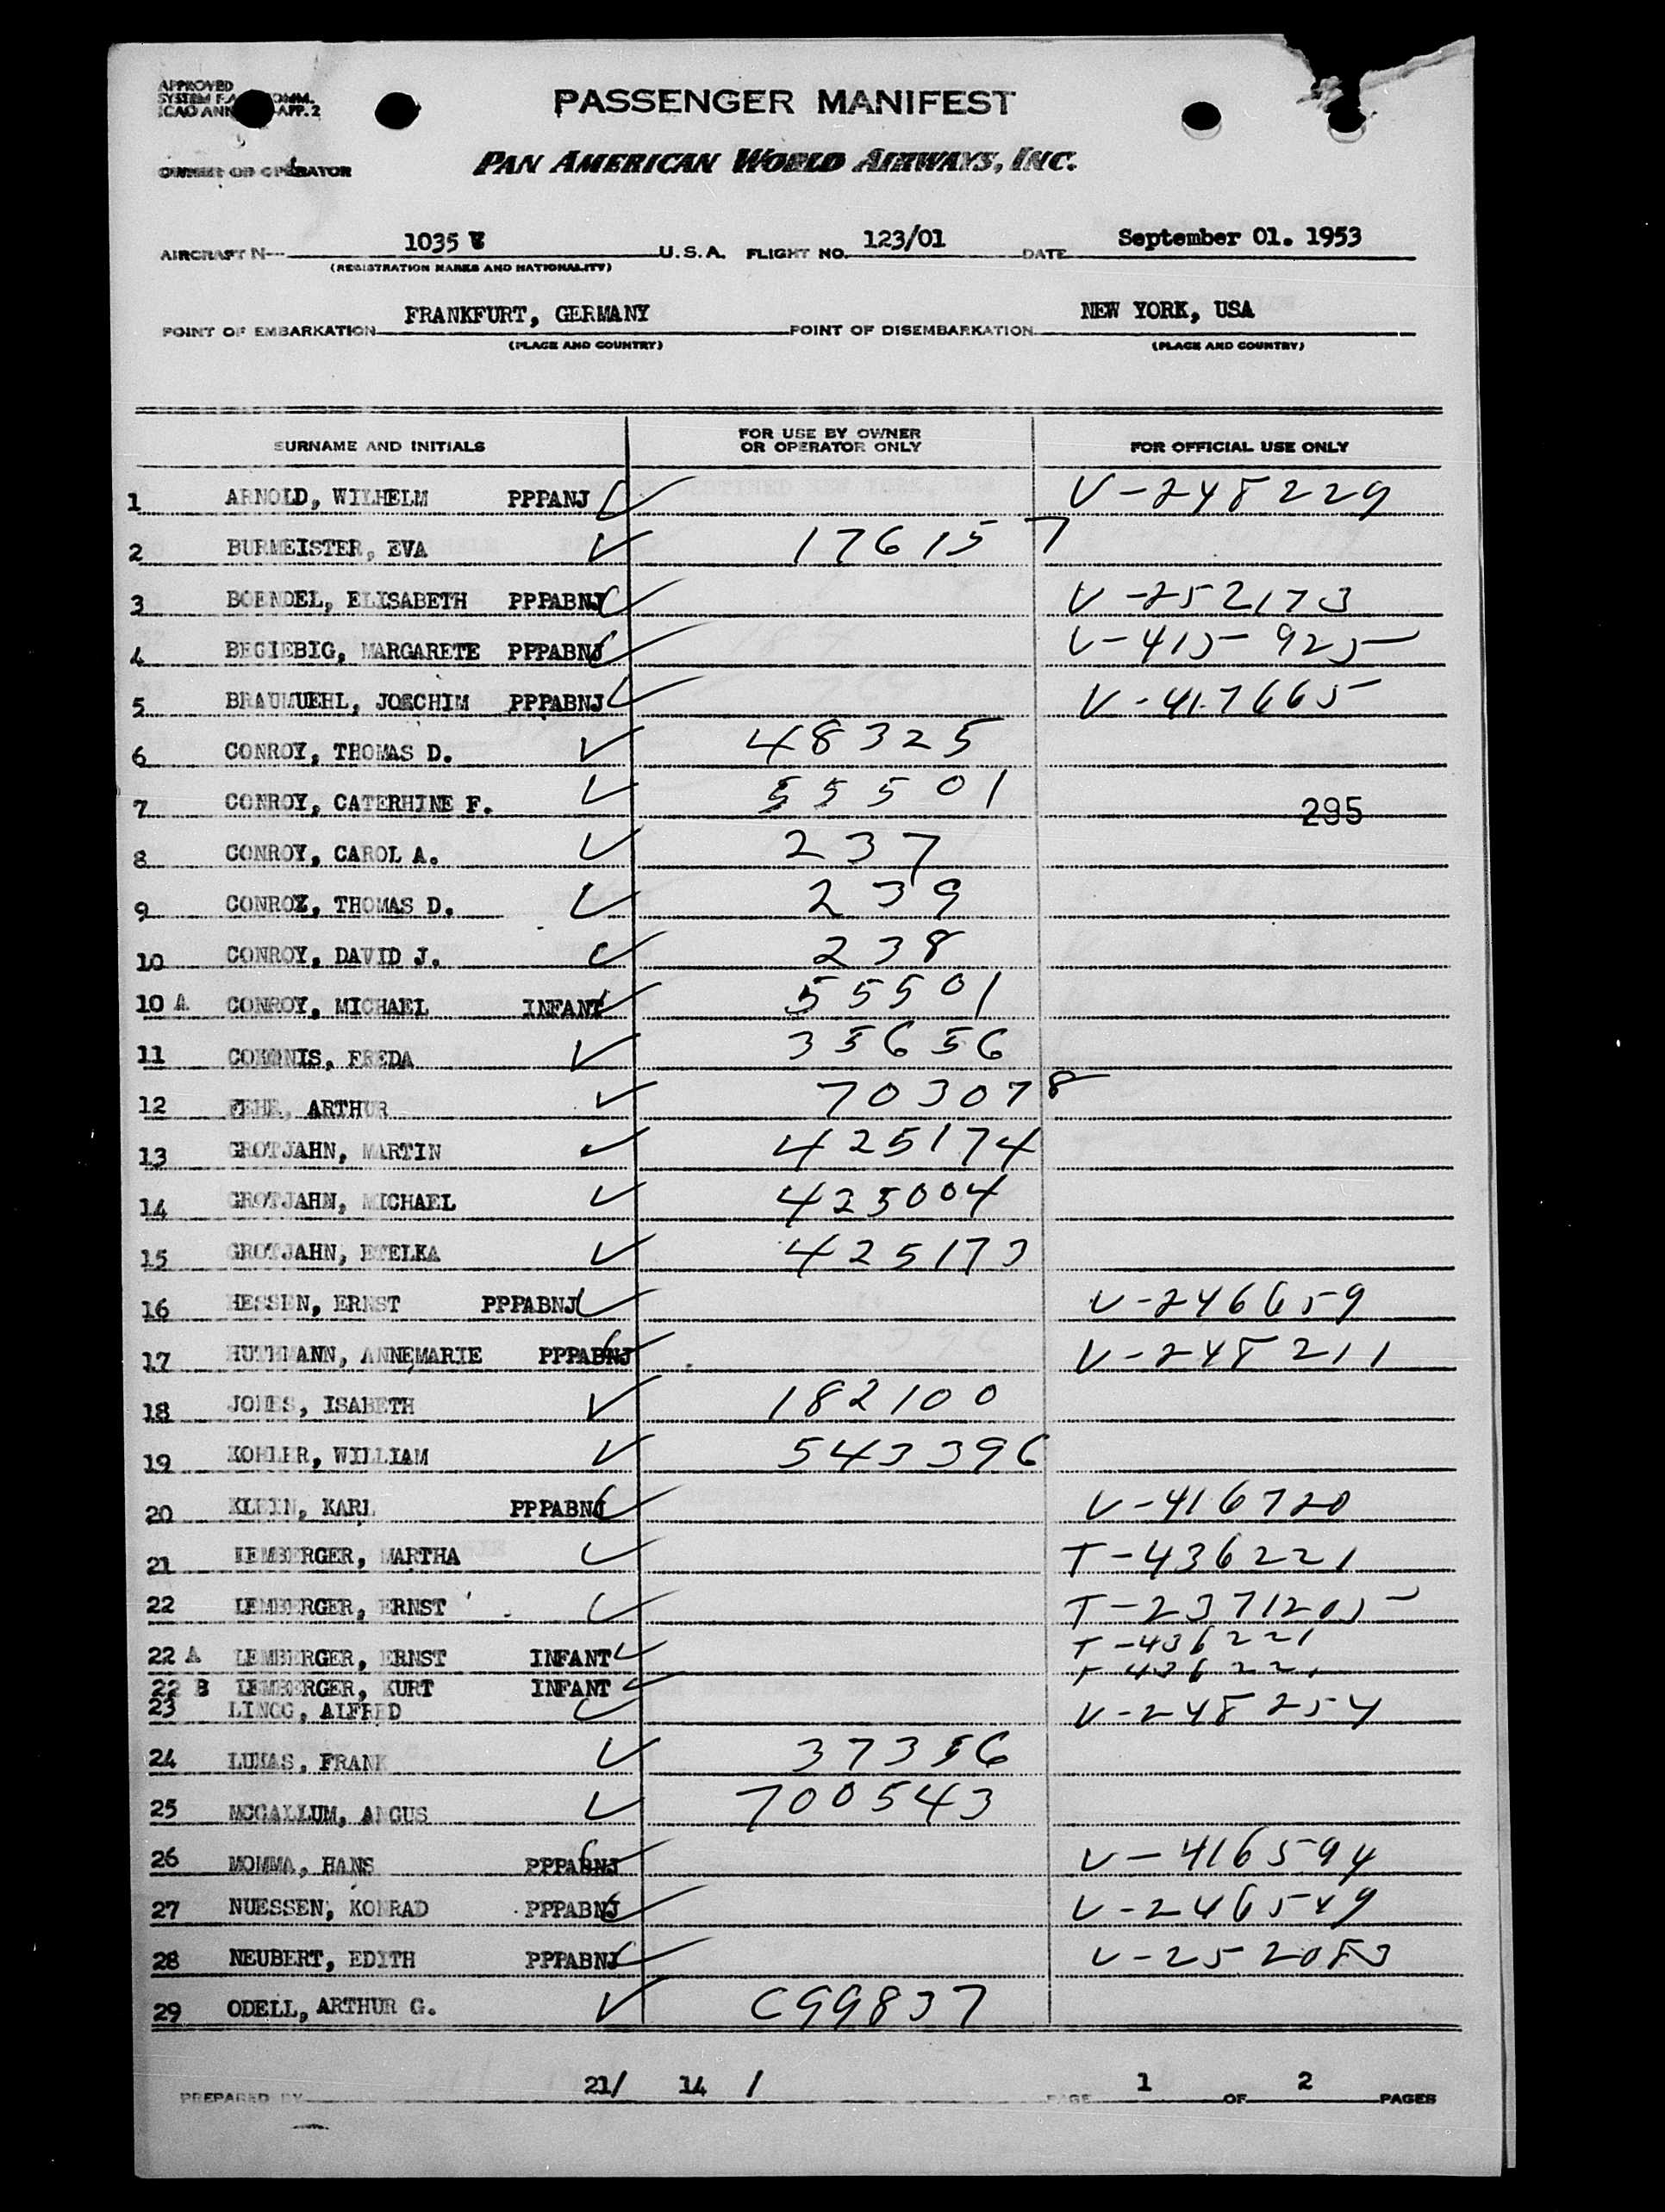 APPROVED
SYSTEM F.A. COMM.
ICAO ANN APP. 2
PASSENGER MANIFEST
OWNER OR OPERATOR PAN AMERICAN WORLD AIRWAYS, INC.
AIRCRAFT N 1035 V U.S.A. FLIGHT NO. 123/01 DATE September 01. 1953
(REGISTRATION MARKS AND NATIONALITY)
POINT OF EMBARKATION FRANKFURT, GERMANY POINT OF DISEMBARKATION NEW YORK, USA
(PLACE AND COUNTRY) (PLACE AND COUNTRY)
SURNAME AND INITIALS FOR USE BY OWNER OR OPERATOR ONLY FOR OFFICIAL USE ONLY
1 ARNOLD, WILHELM PPPANJ V-248229
2 BURMEISTER, EVA 176157
3 BOENDEL, ELISABETH PPPABNJ V-252173
4 BEGIEBIG, MARGARETE PPPABNJ V-415925
5 BRAUMUEHL, JOACHIM PPPABNJ V-417665
6 CONROY, THOMAS D. 48325
7 CONROY, CATERHINE F. 55501
295
8 CONROY, CAROL A. 237
9 CONROY, THOMAS D. 239
10 CONROY, DAVID J. 238
10 A CONROY, MICHAEL INFANT 55501
11 FREDA 35656
12 FEHR, ARTHUR 703078
13 GROTJAHN, MARTIN 425174
14 GROTJAHN, MICHAEL 425004
15 GROTJAHN, ETELKA 425173
16 HESSEN, ERNST PPPABNJ V-246659
17 HUTHMANN, ANNEMARIE PPPABNJ V-248211
18 JONES, ISABETH 182100
19 KOHLER, WILLIAM 543396
20 KLEIN, KARL PPPABNJ V-416720
21 LEMBERGER, MARTHA T-436221
22 LEMBERGER, ERNST T-2371205
22 A LEMBERGER, ERNST INFANT T-436221
22 B LEMBERGER, KURT INFANT T-436221
23 LINGG, ALFRED V-248254
24 LUKAS, FRANK 37356
25 MCCALLUM, ANGUS 700543
26 MOMMA, HANS PPPABNJ V-416594
27 NUESSEN, KONRAD PPPABNJ V-246549
28 NEUBERT, EDITH PPPABNJ V-252083
29 ODELL, ARTHUR G. C99837
PREPARED BY 21/ 14 / PAGE 1 OF 2 PAGES